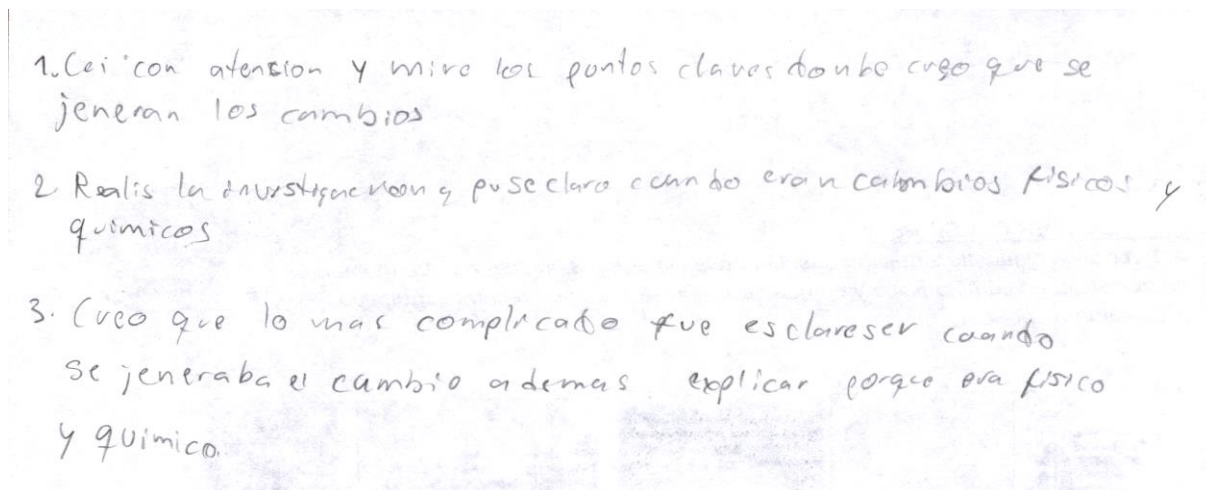 1. Lei con atension y mire los puntos claves donbe creo que se
jeneran los cambios
2 Realis la investigacion y puse claro cuando eran cambios fisicos y
quimicos
3. Creo que lo mas complicado fue esclareser cuando
se jeneraba el cambio ademas explicar porque era fisico
y quimico.